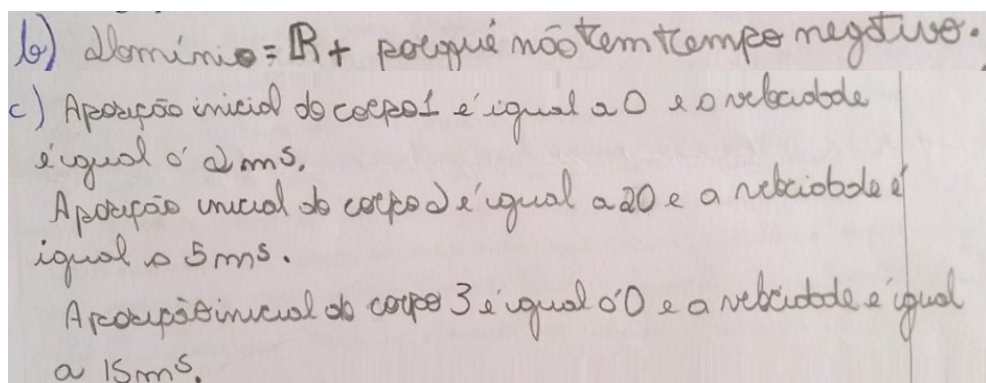 b) domínio = R+ porquê não tem tempo negativo.
c) A posição inicial do corpo 1 é igual a 0 e o velocidade
é igual á 2 mˢ.
A posição inicial do corpo 2 é igual a 20 e a velocidade é
igual a 5 mˢ.
A posição inicial do corpo 3 é igual á 0 e a velocidade é igual
a 15 mˢ.